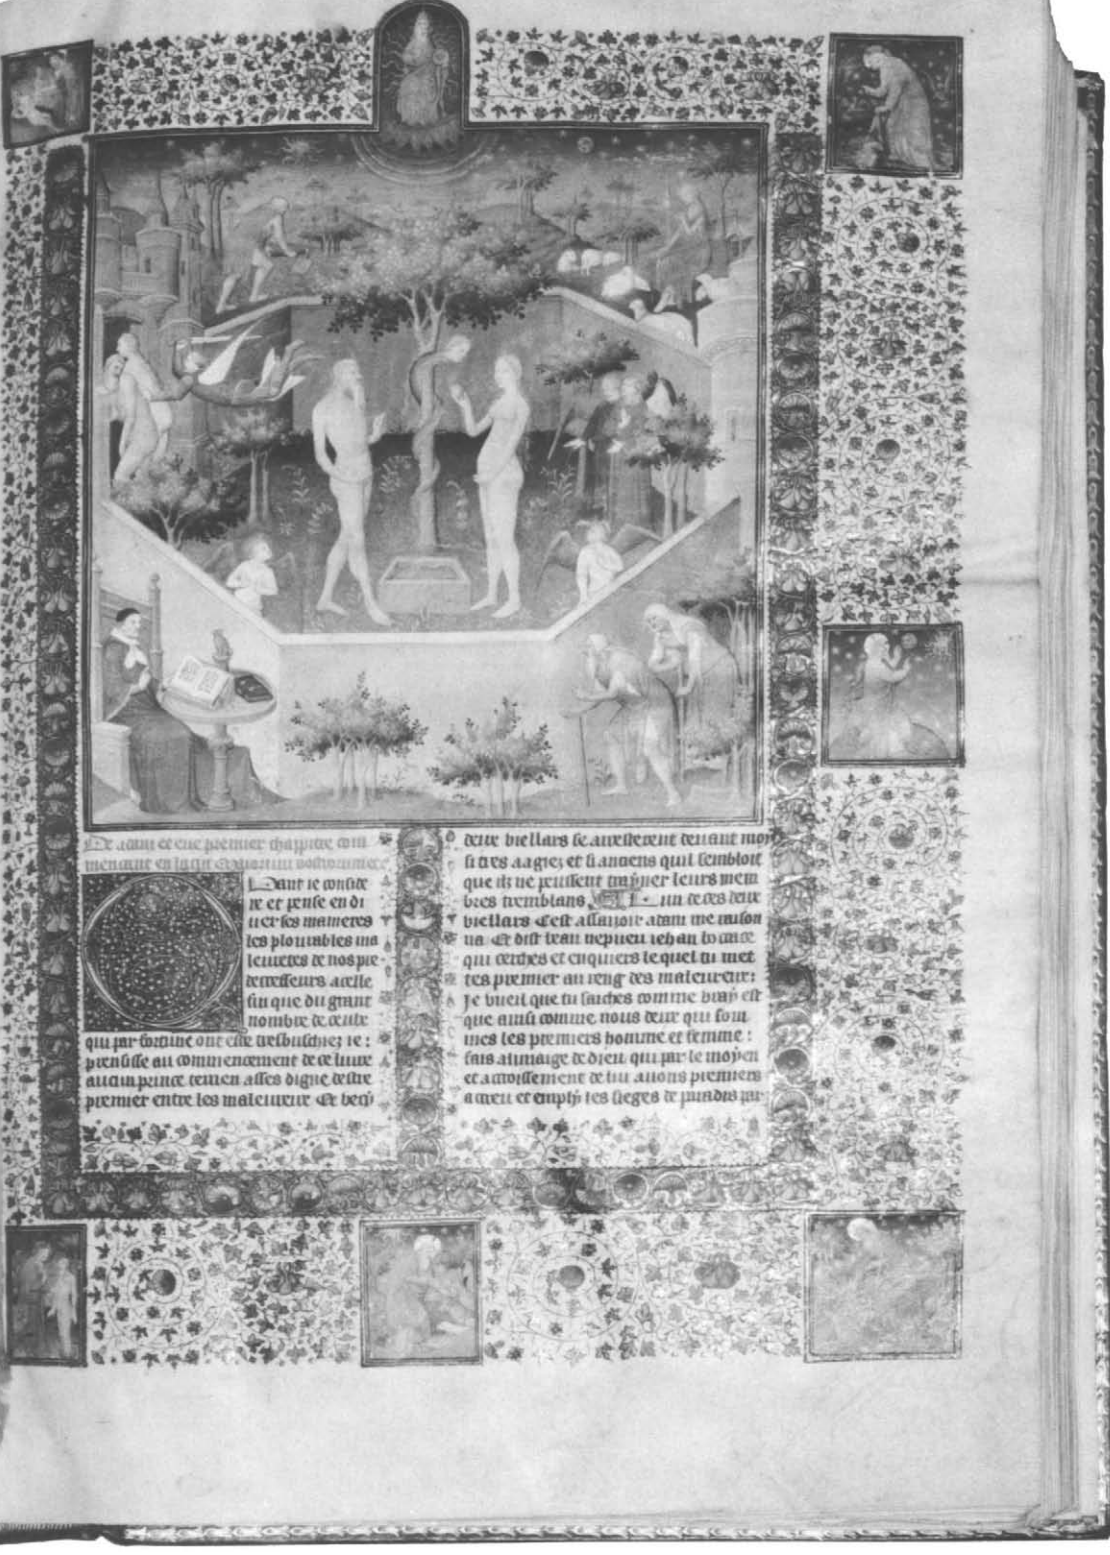 De adam et eue premier chapitre com
mencant en latin Maiorum nostrorum etc
Quant ie conside
re et pense en di
uerses manieres
les plourables ma
leuretes de nos pre
decesseurs a celle
fin que du grant
nombre de ceulx
qui par fortune ont este tresbuschiez ie :
prensisse au commencement de ce liure
aucun prince terrien asses digne destre
premier entre les maleureux Et vecy
deux viellars se arresterent deuant moy
si tres aagiez et si anciens quil sembloit
que ilz ne peussent trayner leurs mem
bres tremblans Lun de ces deux
viellars Cest assauoir adam me raison
na Et dist beau nepueu iehan bocace
qui cerches et enquiers lequel tu met
tes premier au reng des maleureux :
Je vueil que tu saiches comme vray est
que ainsi comme nous deux qui som
mes les premiers homme et femme :
fais a limaige de dieu qui par le moyen
et accroissement de lui auons premiers
acreu et emply les sieges de paradis par